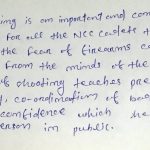 ing is an important and com
for all the NCC cadets t
the fear of firearms ca
from the minds of the
of shooting teaches pre
co-ordination of bo
confidence which he
erson in public.